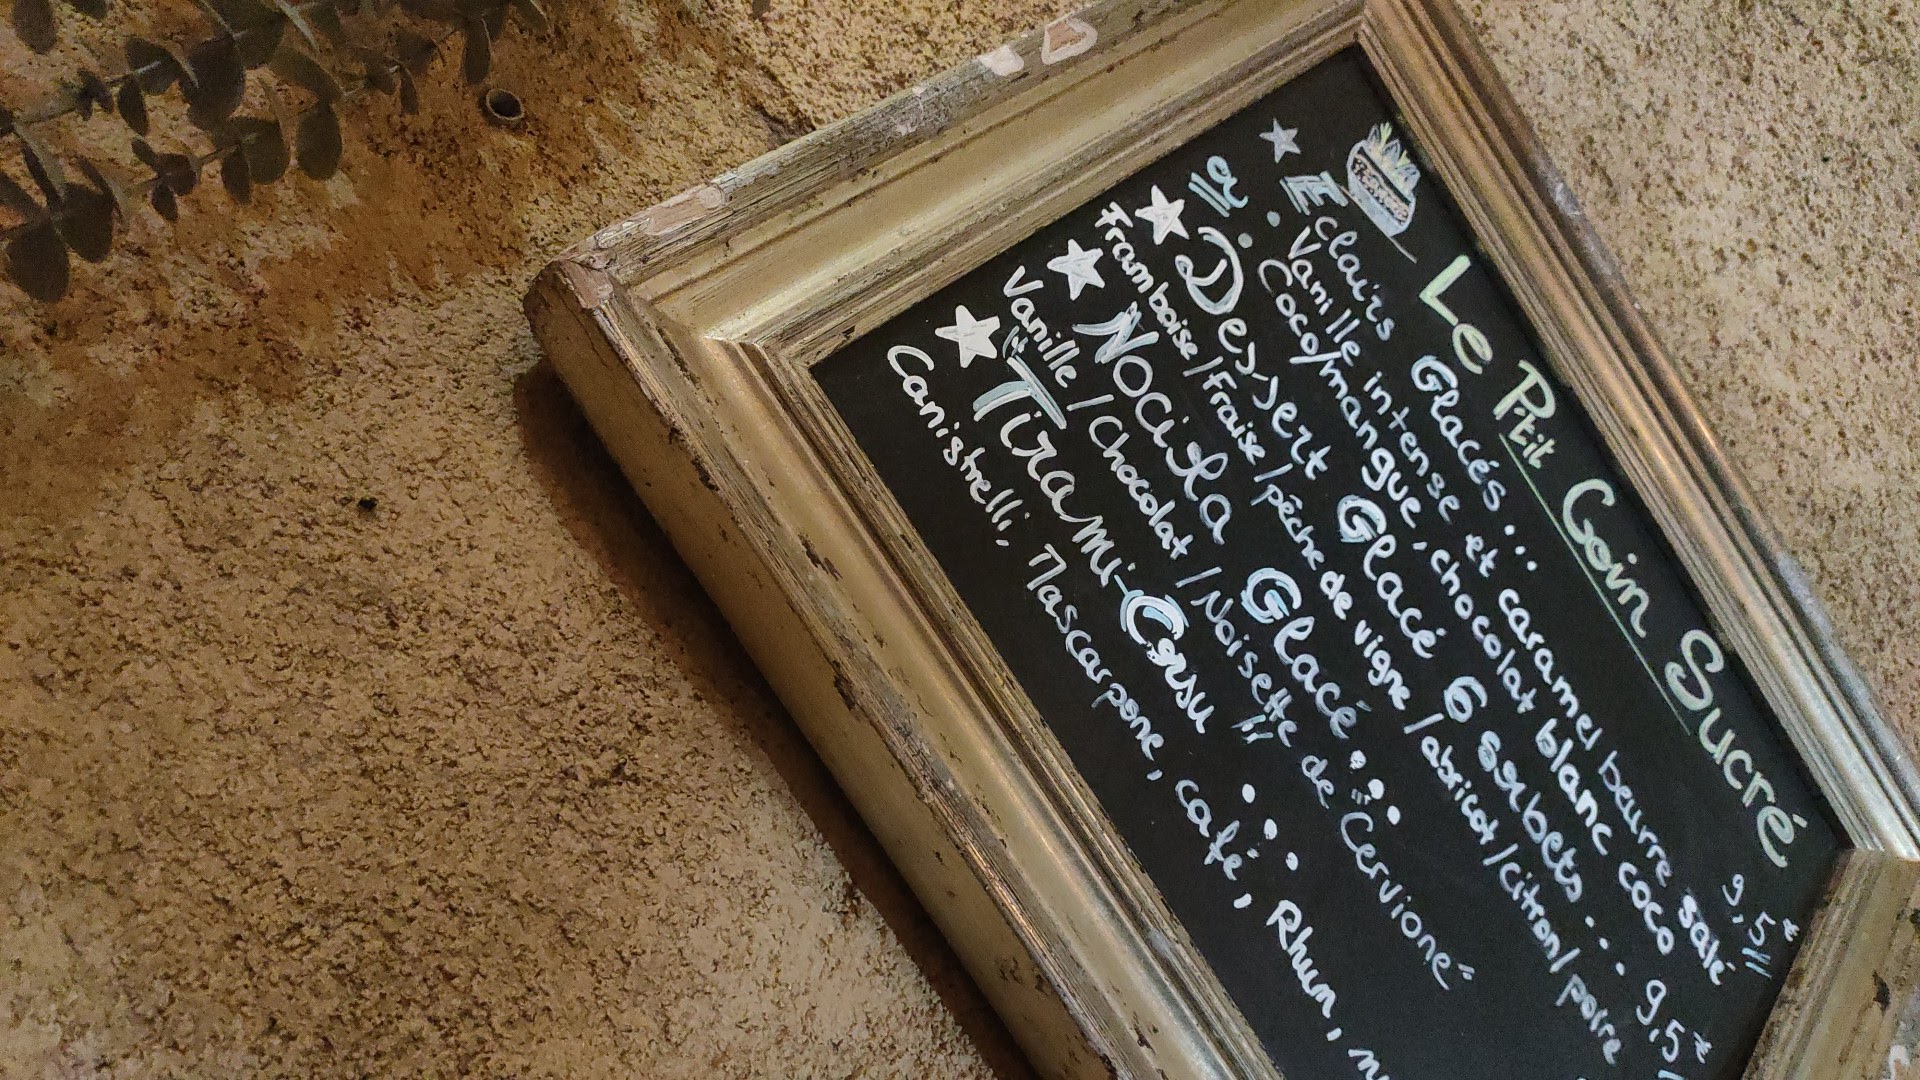 Le Ptit Coin Sucré
Eclairs Glacés... 9,5€
• Vanille intense et caramel beurre salé
• Coco/mangue, chocolat blanc coco
Dessert Glacé 6 sorbets... 9,5€
Framboise/Fraise/pêche de vigne/abricot/citron/poire
Nocciola Glacé...
Vanille/Chocolat/Noisette de Cervioné"
Tirami-Corsu ...
Canistrelli, Mascarpone, café, Rhum,